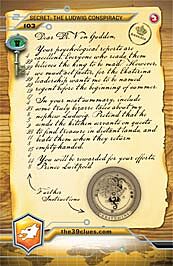 SECRET: THE LUDWIG CONSPIRACY
103
Dear Dr. Von Gudden,
Your psychological reports are
excellent. Everyone who reads them
believes the king to be mad. However,
we must act faster, for the Ekaterina
leadership wants me to be named
regent before the beginning of summer.
In your next summary, include
some truly bizarre tales about my
nephew Ludwig. Pretend that he
sends the kitchen servants on quests
to find treasure in distant lands, and
taunts them when they return
empty-handed.
You will be rewarded for your efforts.
Prince Luitpold
Further
Instructions
www.the39clues.com